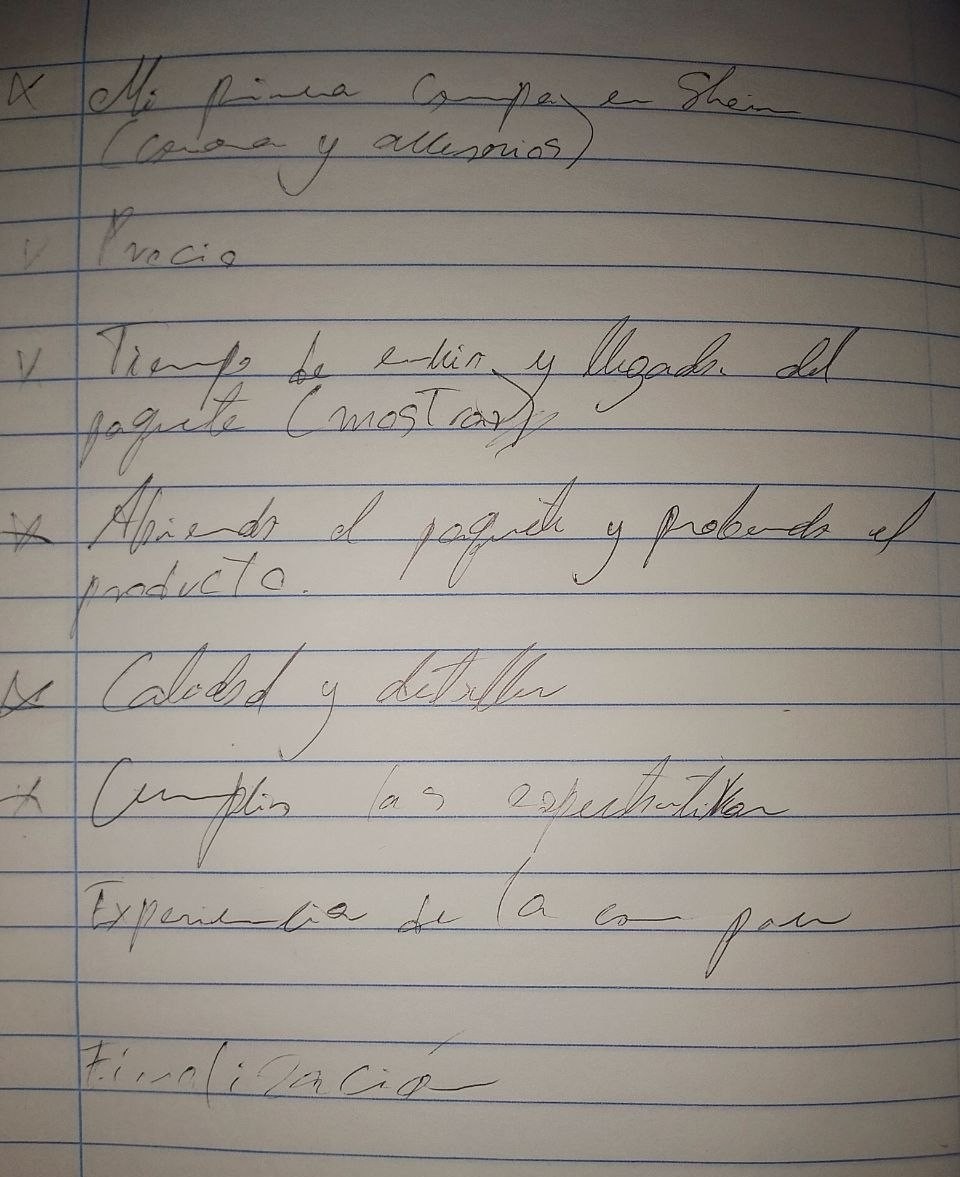 Mi primera compra en Shein
(corona y accesorios)
Precio
Tiempo de envio y llegada del
paquete (mostrar)
Abriendo el paquete y probando el
producto.
Calidad y detalles
Cumplio las expectativas
Experiencia de la compra
Finalización